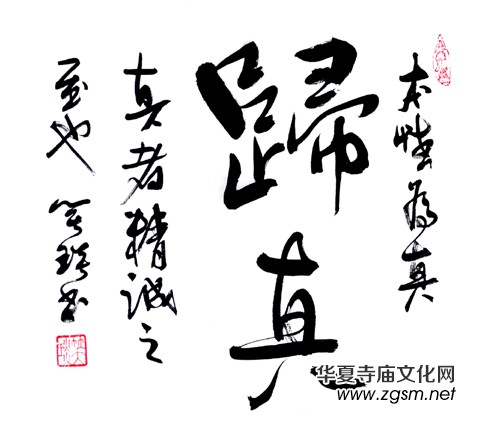 本性為真
歸真
真者精诚之
至也 书
华夏寺庙文化网
www.zgsm.net